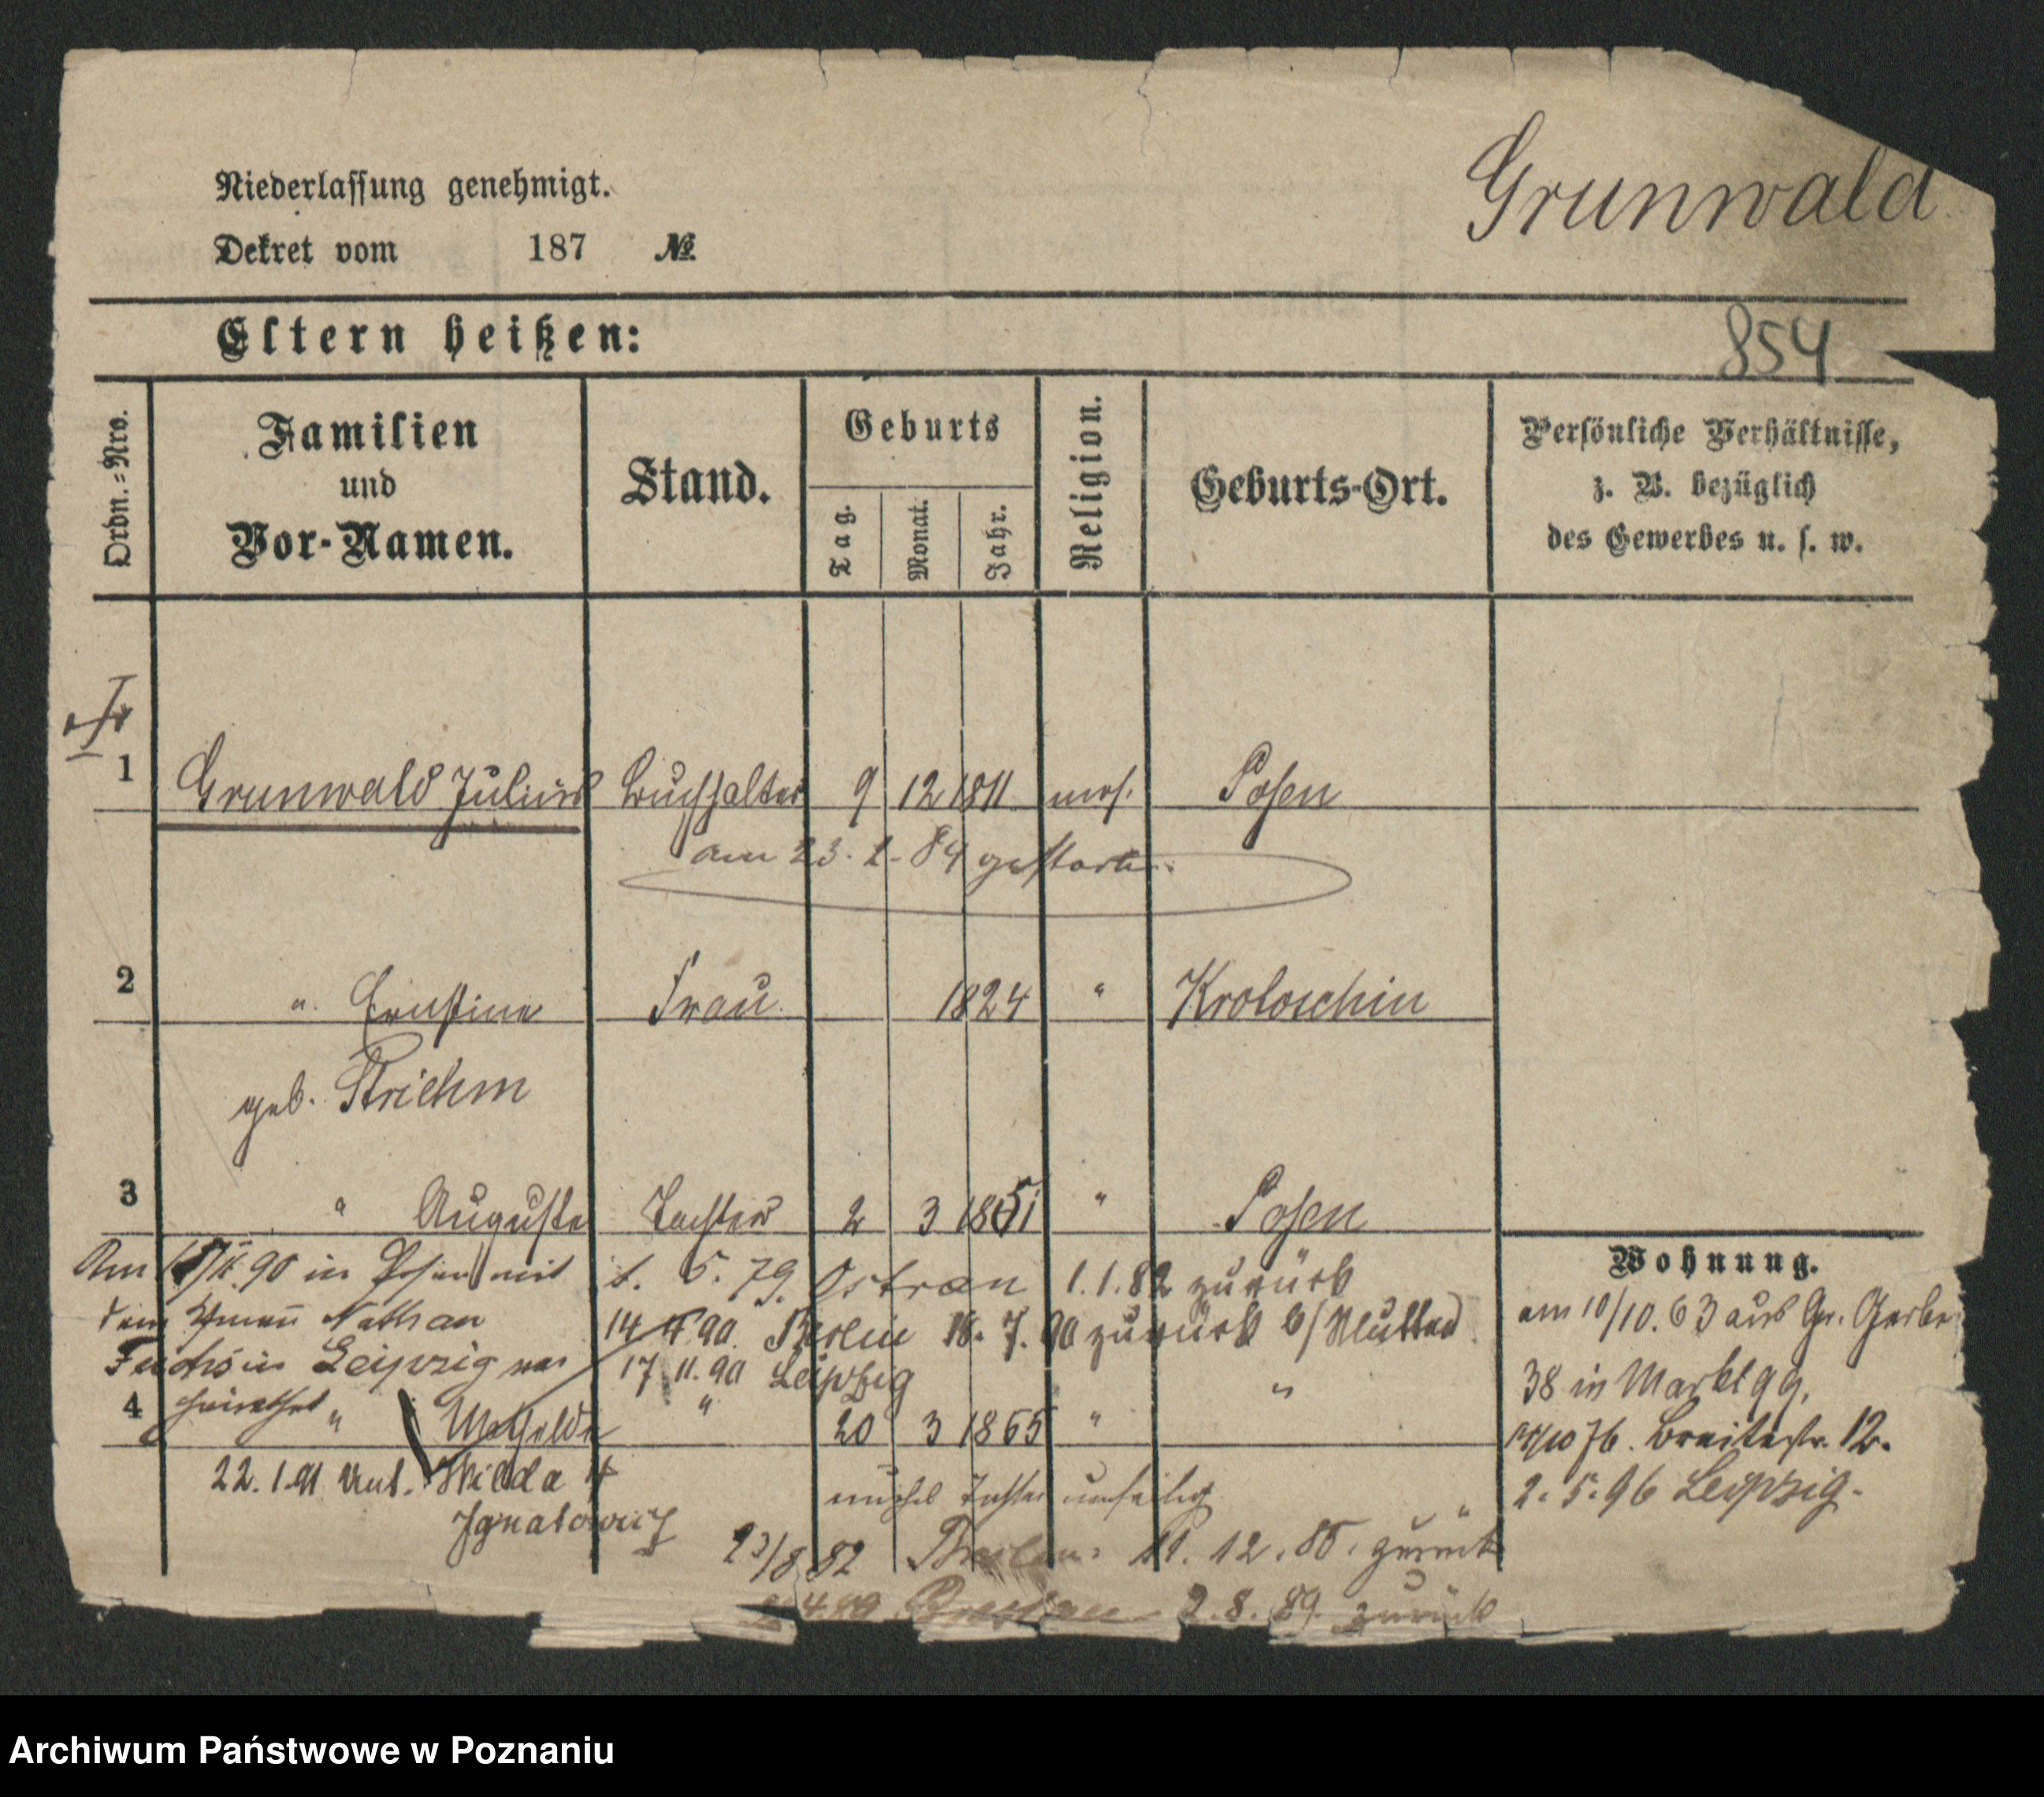 Niederlassung genehmigt.
Dekret vom 187 №
Grunwald
Eltern heißen:
854
Ordn.=Nro.
Familien
und
Vor-Namen.
Stand.
Geburts
Tag.
Monat.
Jahr.
Religion.
Geburts-Ort.
Persönliche Verhältnisse,
z. B. bezüglich
des Gewerbes u. s. w.
1 Grunwald Julius Buchhalter 9 12 1811 mos. Posen
am 23. 2. 84 gestorben
2 " Ernstine Frau 1824 " Krotoschin
geb. Striehm
3 " Auguste Tochter 2 3 1851 " Posen
Am 90 in Posen mit
dem Nathan
Fuchs in Leipzig ver
heirathet
5. 79. Ostran 1.1.82 zurück
14 90. Berlin 18. 7. 90 zurück b/Mutter
17 11. 90 Leipzig "
4 " Mathilde " 20 3 1865 "
22. 1. 91
Ignatowicz
23/8 82 Breslau 11. 12. 85. zurück
Breslau 2. 8. 89. zurück
Wohnung.
am 10/10. 63 aus Gr. Gerber
38 in Markt 99.
10/10 76. Breitestr. 12.
2. 5. 96 Leipzig.
Archiwum Państwowe w Poznaniu